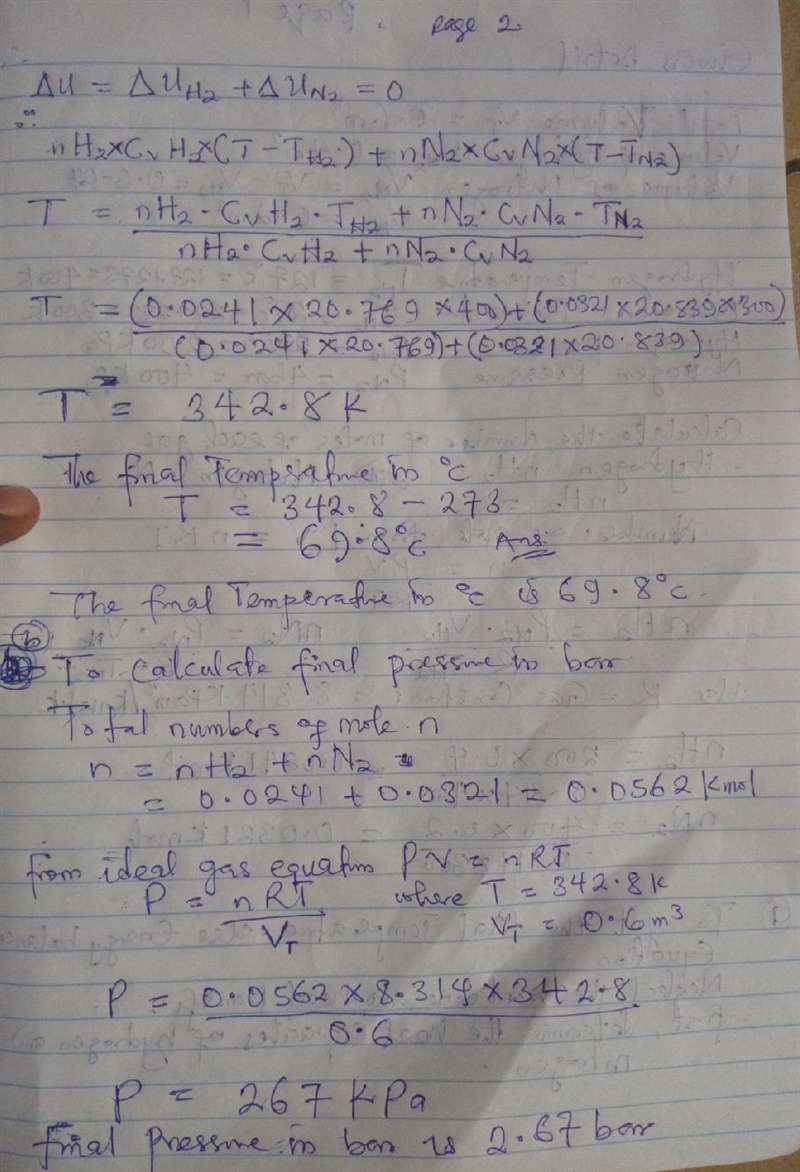 Page 2
ΔU = ΔU_H2 + ΔU_N2 = 0
∴
nH2×CvH2×(T-T_H2) + nN2×CvN2×(T-T_N2)
T = nH2·CvH2·T_H2 + nN2·CvN2·T_N2
nH2·CvH2 + nN2·CvN2
T = (0.0241×20.769×400)+(0.0321×20.839×300)
(0.0241×20.769)+(0.0321×20.839)
T = 342.8K
The final Temperature in °C
T = 342.8 - 273
= 69.8°C Ans:
The final Temperature in °C is 69.8°C.
(b)
To calculate final pressure in bar
Total numbers of mole n
n = nH2 + nN2
= 0.0241 + 0.0321 = 0.0562 Kmol
from ideal gas equation PV = nRT
P = nRT where T = 342.8K
V_T V_T = 0.6m³
P = 0.0562×8.314×342.8
0.6
P = 267KPa
final pressure in bar is 2.67 bar